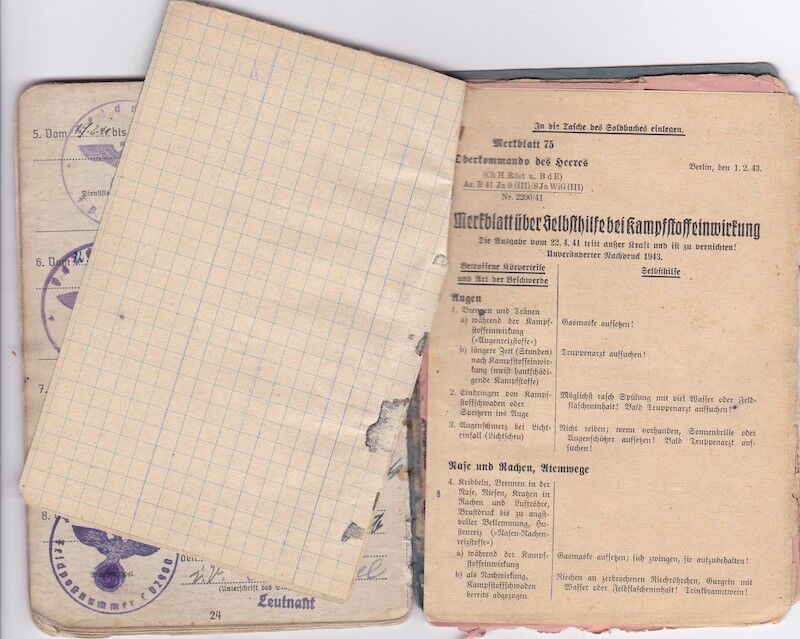 5. Vom 19.2.40 bis
Dienstste
6. Vom
7.
8.
den
Feldpostnummer
(Unterschrift des
Leutnant
24
In die Tasche des Soldbuches einlegen.
Merkblatt 75
Oberkommando des Heeres
(Ch H Rüst u. B d E)
Az. B 41 Jn 9 (III)/SJn WiG (III)
Nr. 2200/41
Berlin, den 1. 2. 43.
Merkblatt über Selbsthilfe bei Kampfstoffeinwirkung
Die Ausgabe vom 22. 4. 41 tritt außer Kraft und ist zu vernichten!
Unveränderter Nachdruck 1943.
Betroffene Körperteile
und Art der Beschwerde
Selbsthilfe
Augen
1. Brennen und Tränen
a) während der Kampf-
stoffeinwirkung
(»Augenreizstoffe«)
Gasmaske aufsetzen!
b) längere Zeit (Stunden)
nach Kampfstoffeinwir-
kung (meist hautschädi-
gende Kampfstoffe)
Truppenarzt aufsuchen!
2. Eindringen von Kampf-
stoffschwaden oder
Spritzern ins Auge
Möglichst rasch Spülung mit viel Wasser oder Feld-
flascheninhalt! Bald Truppenarzt aufsuchen!
3. Augenschmerz bei Licht-
einfall (Lichtscheu)
Nicht reiben; wenn vorhanden, Sonnenbrille oder
Augenschützer aufsetzen! Bald Truppenarzt auf-
suchen!
Nase und Rachen, Atemwege
4. Kribbeln, Brennen in der
Nase, Niesen, Kratzen in
Rachen und Luftröhre,
Brustdruck bis zu angst-
voller Beklemmung, Hu-
stenreiz (»Nasen-Rachen-
reizstoffe«)
a) während der Kampf-
stoffeinwirkung
Gasmaske aufsetzen; sich zwingen, sie aufzubehalten!
b) als Nachwirkung,
Kampfstoffschwaden
bereits abgezogen
Riechen an zerbrochenen Riechröhrchen, Gurgeln mit
Wasser oder Feldflascheninhalt! Trinkbranntwein!